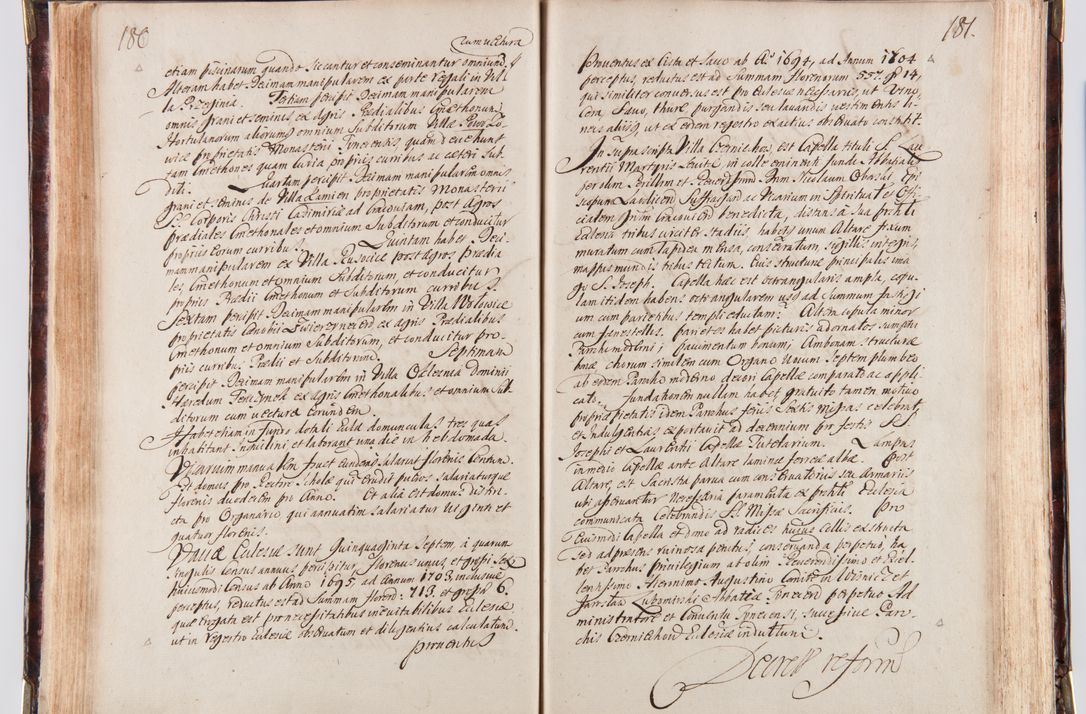 180
cum vectura
etiam piscinarum quando siccantur et conseminantur omnium
Alteram habet Decimam manipularem ex parte Regali in Vil
la Przeginia. Tertiam percipit Decimam manipularem
omnis grani et seminis ex Agris Prædialibus Cmethonum
Hortulanorum aliorumq omnium Subditorum Villæ
wice proprietatis Monasterii Tynecensis, quam devehunt
tam Cmethones quam Curia propriis curribus ac cæteri Sub
diti. Quartam percipit Decimam manipularem omnis
grani et seminis de Villa Łamien proprietatis Monasterii
S. Corporis Christi Casimiriæ ad Cracoviam, post Agros
Prædiales Cmethonales et omnium Subditorum et conducitur
propriis eorum curribus. Quintam habet Deci
mam manipularem ex Villa Rusocice post Agros Prædia
les Cmethonum et omnium Subditorum, et conducitur
propriis Prædii Cmethonum et Subditorum curribus
Sextam percipit Decimam manipularem in Villa Wolowice
proprietatis Cœnobii Zwierzynecen ex Agris Prædialibus
Cmethonum et omnium Subditorum, et conducitur pro
priis curribus Prædii et Subditorum. Septimam
percipit Decimam manipularem in Villa Dominii
Hæredum Tenczynen ex Agris Cmethonalibus et omnium Sub
ditorum cum vectura eorundem.
Habet etiam in fundo dotali Ecclæ domunculas tres quas
inhabitant Inquilini et laborant una die in hebdomada.
Vicarium manualem fovet eundemq salariat florenis Centum.
Est domus pro Rectore Scholæ qui erudit pueros Salariaturque
florenis duodecim pro Anno. Et alia est domus distin
cta pro Organario qui annuatim salariatur viginti et
quatuor florenis.
Vaccæ Ecclesiæ sunt Quinquaginta Septem, a quarum
singulis census annuus percipitur Florenus unus, et grossi sex
huiusmodi Census ab Anno 1695. ad Annum 1703. inclusive
perceptus, reductus est ad Summam floren: 713. et grossos 6.
quæ erogata est pro necessitatibus inevitabilibus Ecclesiæ
ut in Regestro Ecclesiæ observatum et diligentius calculatum.
proventus
181.
Proventus ex Cista et Sacco ab Aº 1694, ad Annum 1704
perceptus, reductus est ad Summam Florenorum 557. g 14,
qui similiter conversus est pro Ecclesiæ necessariis, ut Vino,
Cera, Sevo, thure, purgandis seu lavandis vestimentis li
neis aliisq, ut ex eodem regestro exactius observato constitit.
In suprascripta Villa Czerniehow, est Capella tituli S. Lau
rentii Martyris Levitæ in colle eminenti fundi Abbatialis
per olim Perillrem et Reverendmum Dnm Nicolaum Oborski, Epi
scopum Laodicen Suffraganeum ac Vicarium in Spiritual et Offi
cialem Gnlem Cracovien benedicta, distans a sua præfatali
Ecclesia tribus circiter stadiis habens unum Altare fraum
muratum cum lapidea mensa, consecratum, sigillis integris,
mappis mundis tribus tectum. Cuius structuræ principalis ima
go S. Joseph. Capella hæc est octangularis ampla, cupu
lam itidem habens octangularem usq ad Summum fastigi
um cum parietibus templi eductam. Altera cupula minor
cum fenestellis, parietes habet picturis adornatos sumptu
Parochi moderni; pavimentum bonum; Ambonam structuræ
bonæ chorum similem cum Organo Vocum Septem plumbeo
ab eodem Parocho moderno decori Capellæ comparato ac appli
cato. Fundationem nullam habet, gratuito tamen motivo
propriæ pietatis idem Parochus feriis Sextis Missas celebrat,
et Indulgentias exportavit ad decennium pro festis SS.
Josephi et Laurentii Capellæ Tutelarium. Lampas
in medio Capellæ ante Altare laminæ ferreæ albæ. Post
Altare, est Sacristia parva cum conservatoriis seu Armariis
ubi asservantur Necessaria paramenta ex præfatali Ecclesia
communicata Celebrandis SS. Missæ Sacrificiis. Pro
Eiusmodi Capella et domo ad radices huius collis exstructa
sed ad præsens ruinosa penitus, conservanda perpetuo, ha
bet Parochus Privilegium ab olim Reverendissimo et Excel
lentissimo Hieronimo Augustino Comite in Wisnicz et
Jaroslau Lubomirski Abbatiæ Tynecen perpetuo Ad
ministratore et Conventu Tynecensi, successive Paro
chis Czernichovien Ecclesiæ indultum.
Decret reform